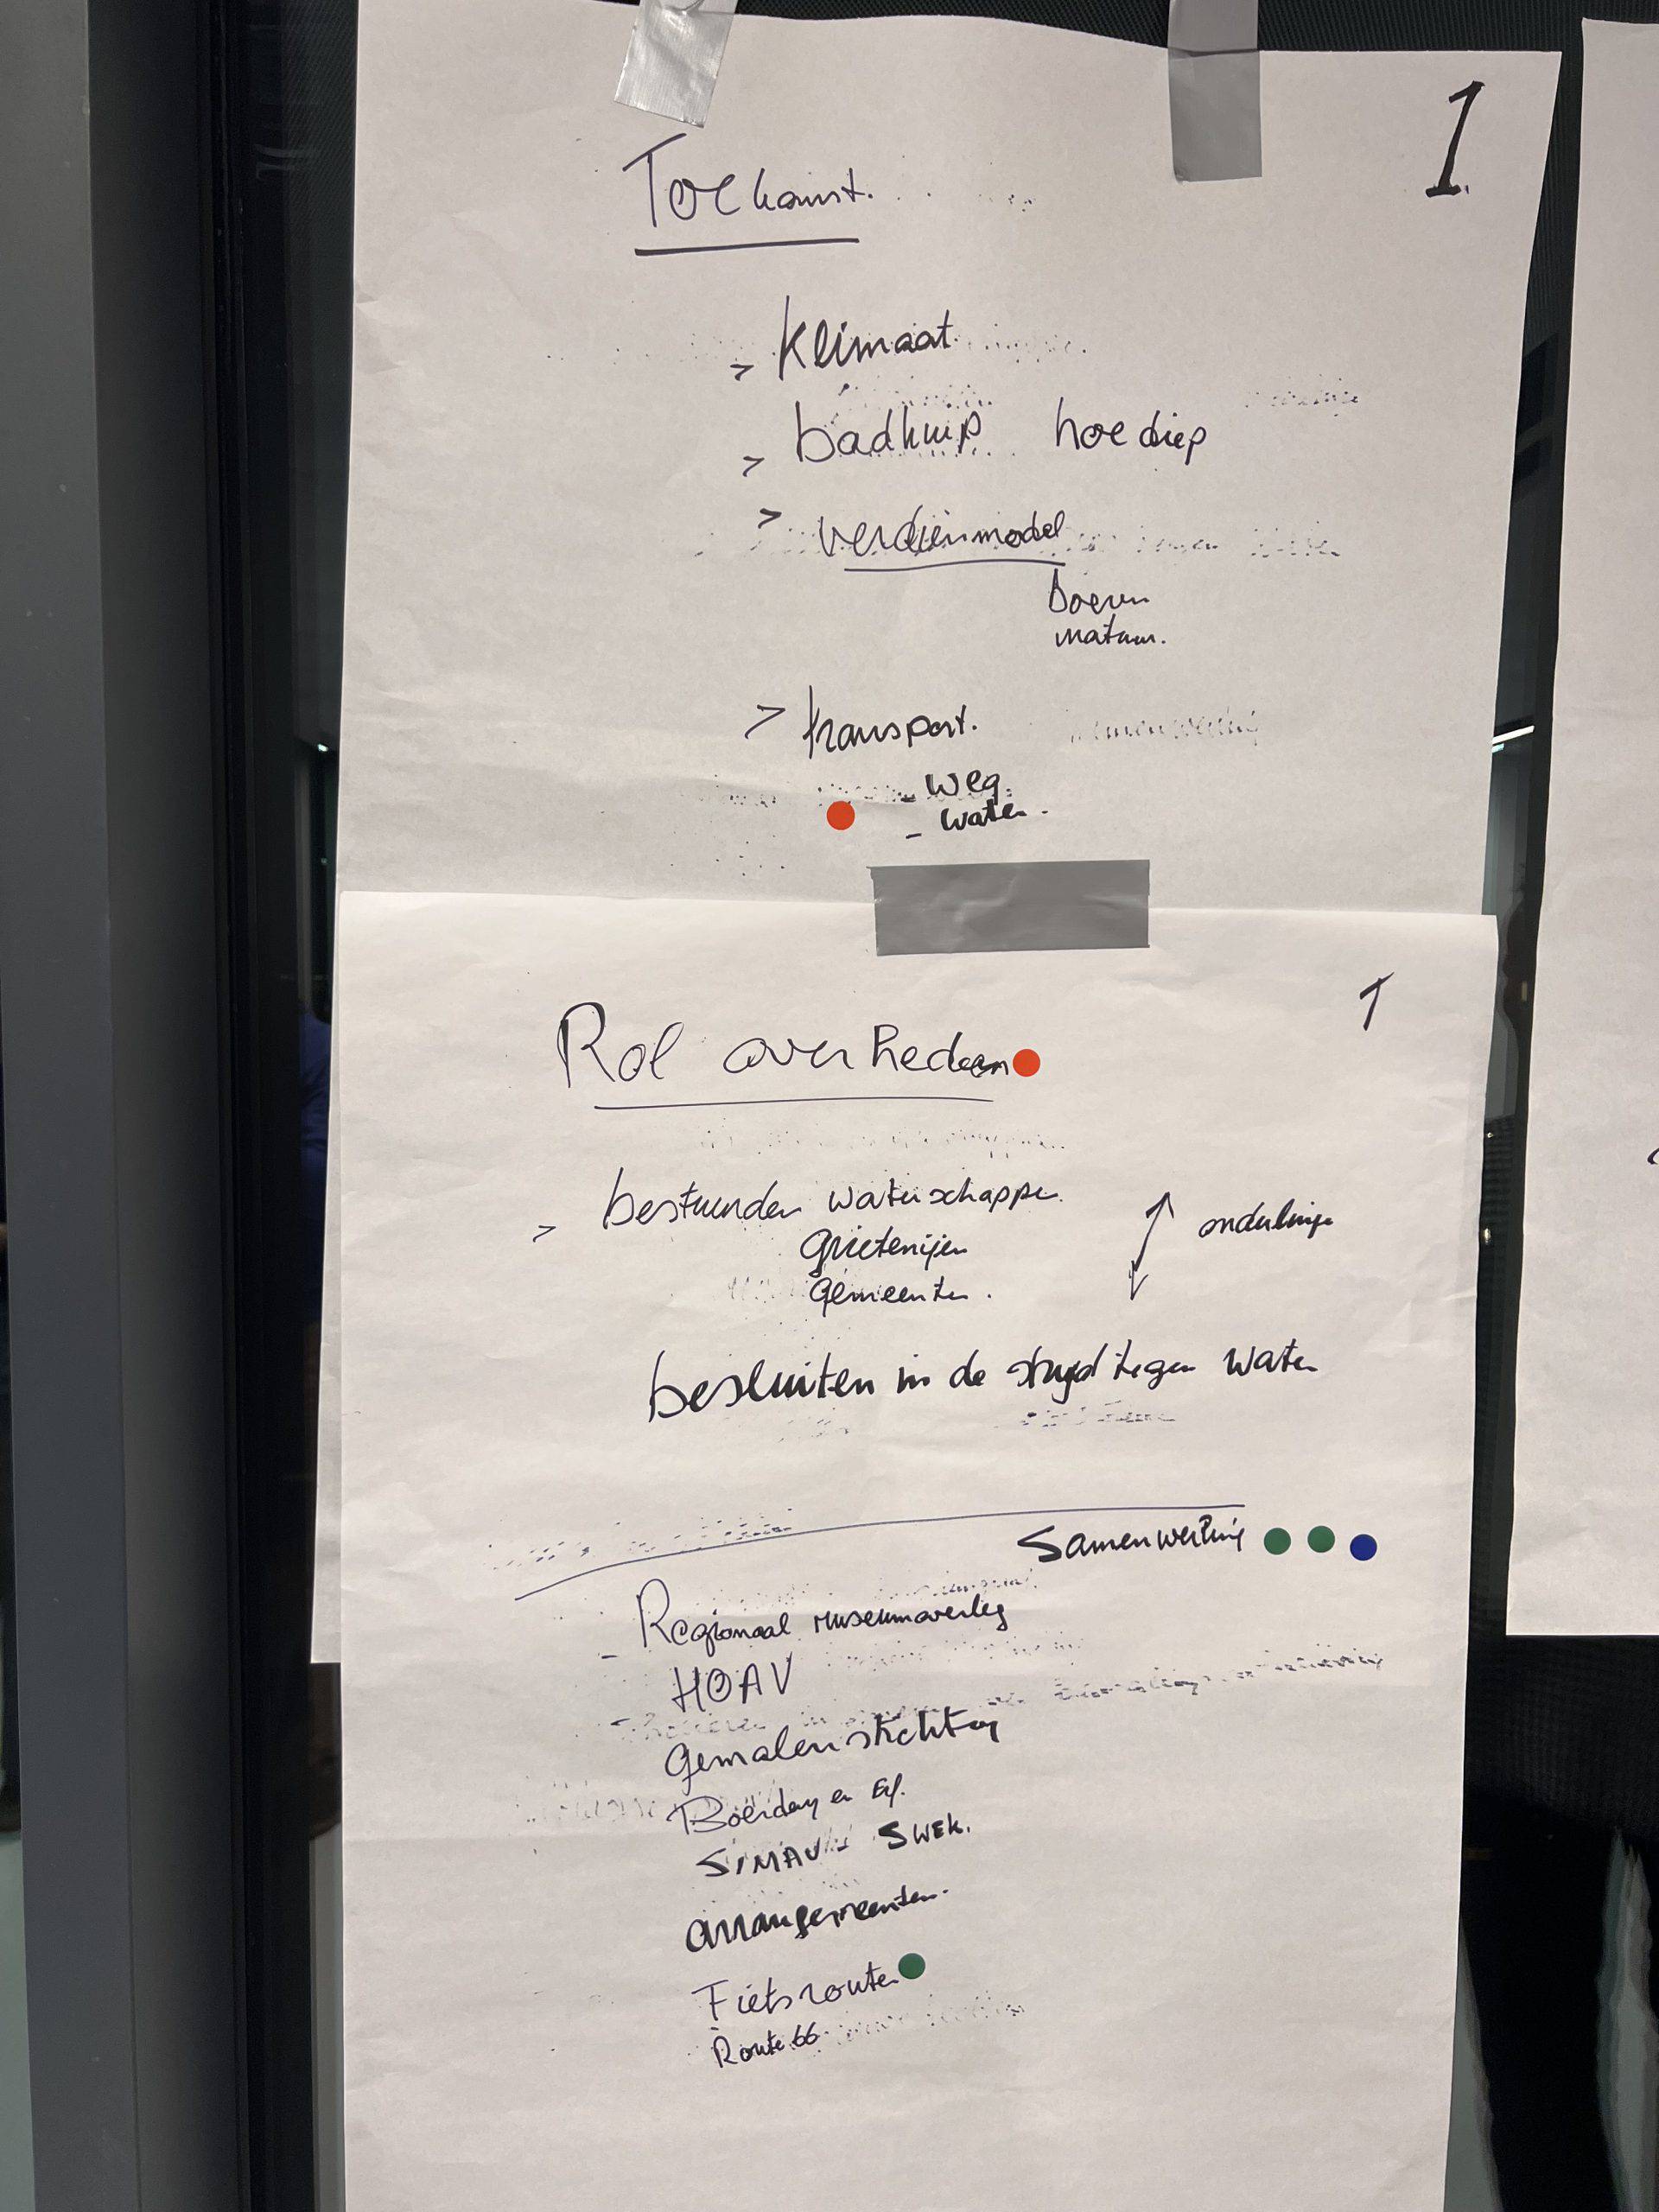 1.
Toekomst.
> Klimaat
> badkuip hoe diep
> verdienmodel
boeren
natuur.
> transport.
- weg.
- water.
1
Rol overheden
> bestuurders waterschappen
Grietenijen
Gemeenten.
onderlinge
besluiten in de strijd tegen water
Samenwerking
- Regionaal museumoverleg
HOAV
Gemalenstichting
Boerderij en Erf.
SIMAV SWEK.
arrangementen.
Fietsroute
Route 66